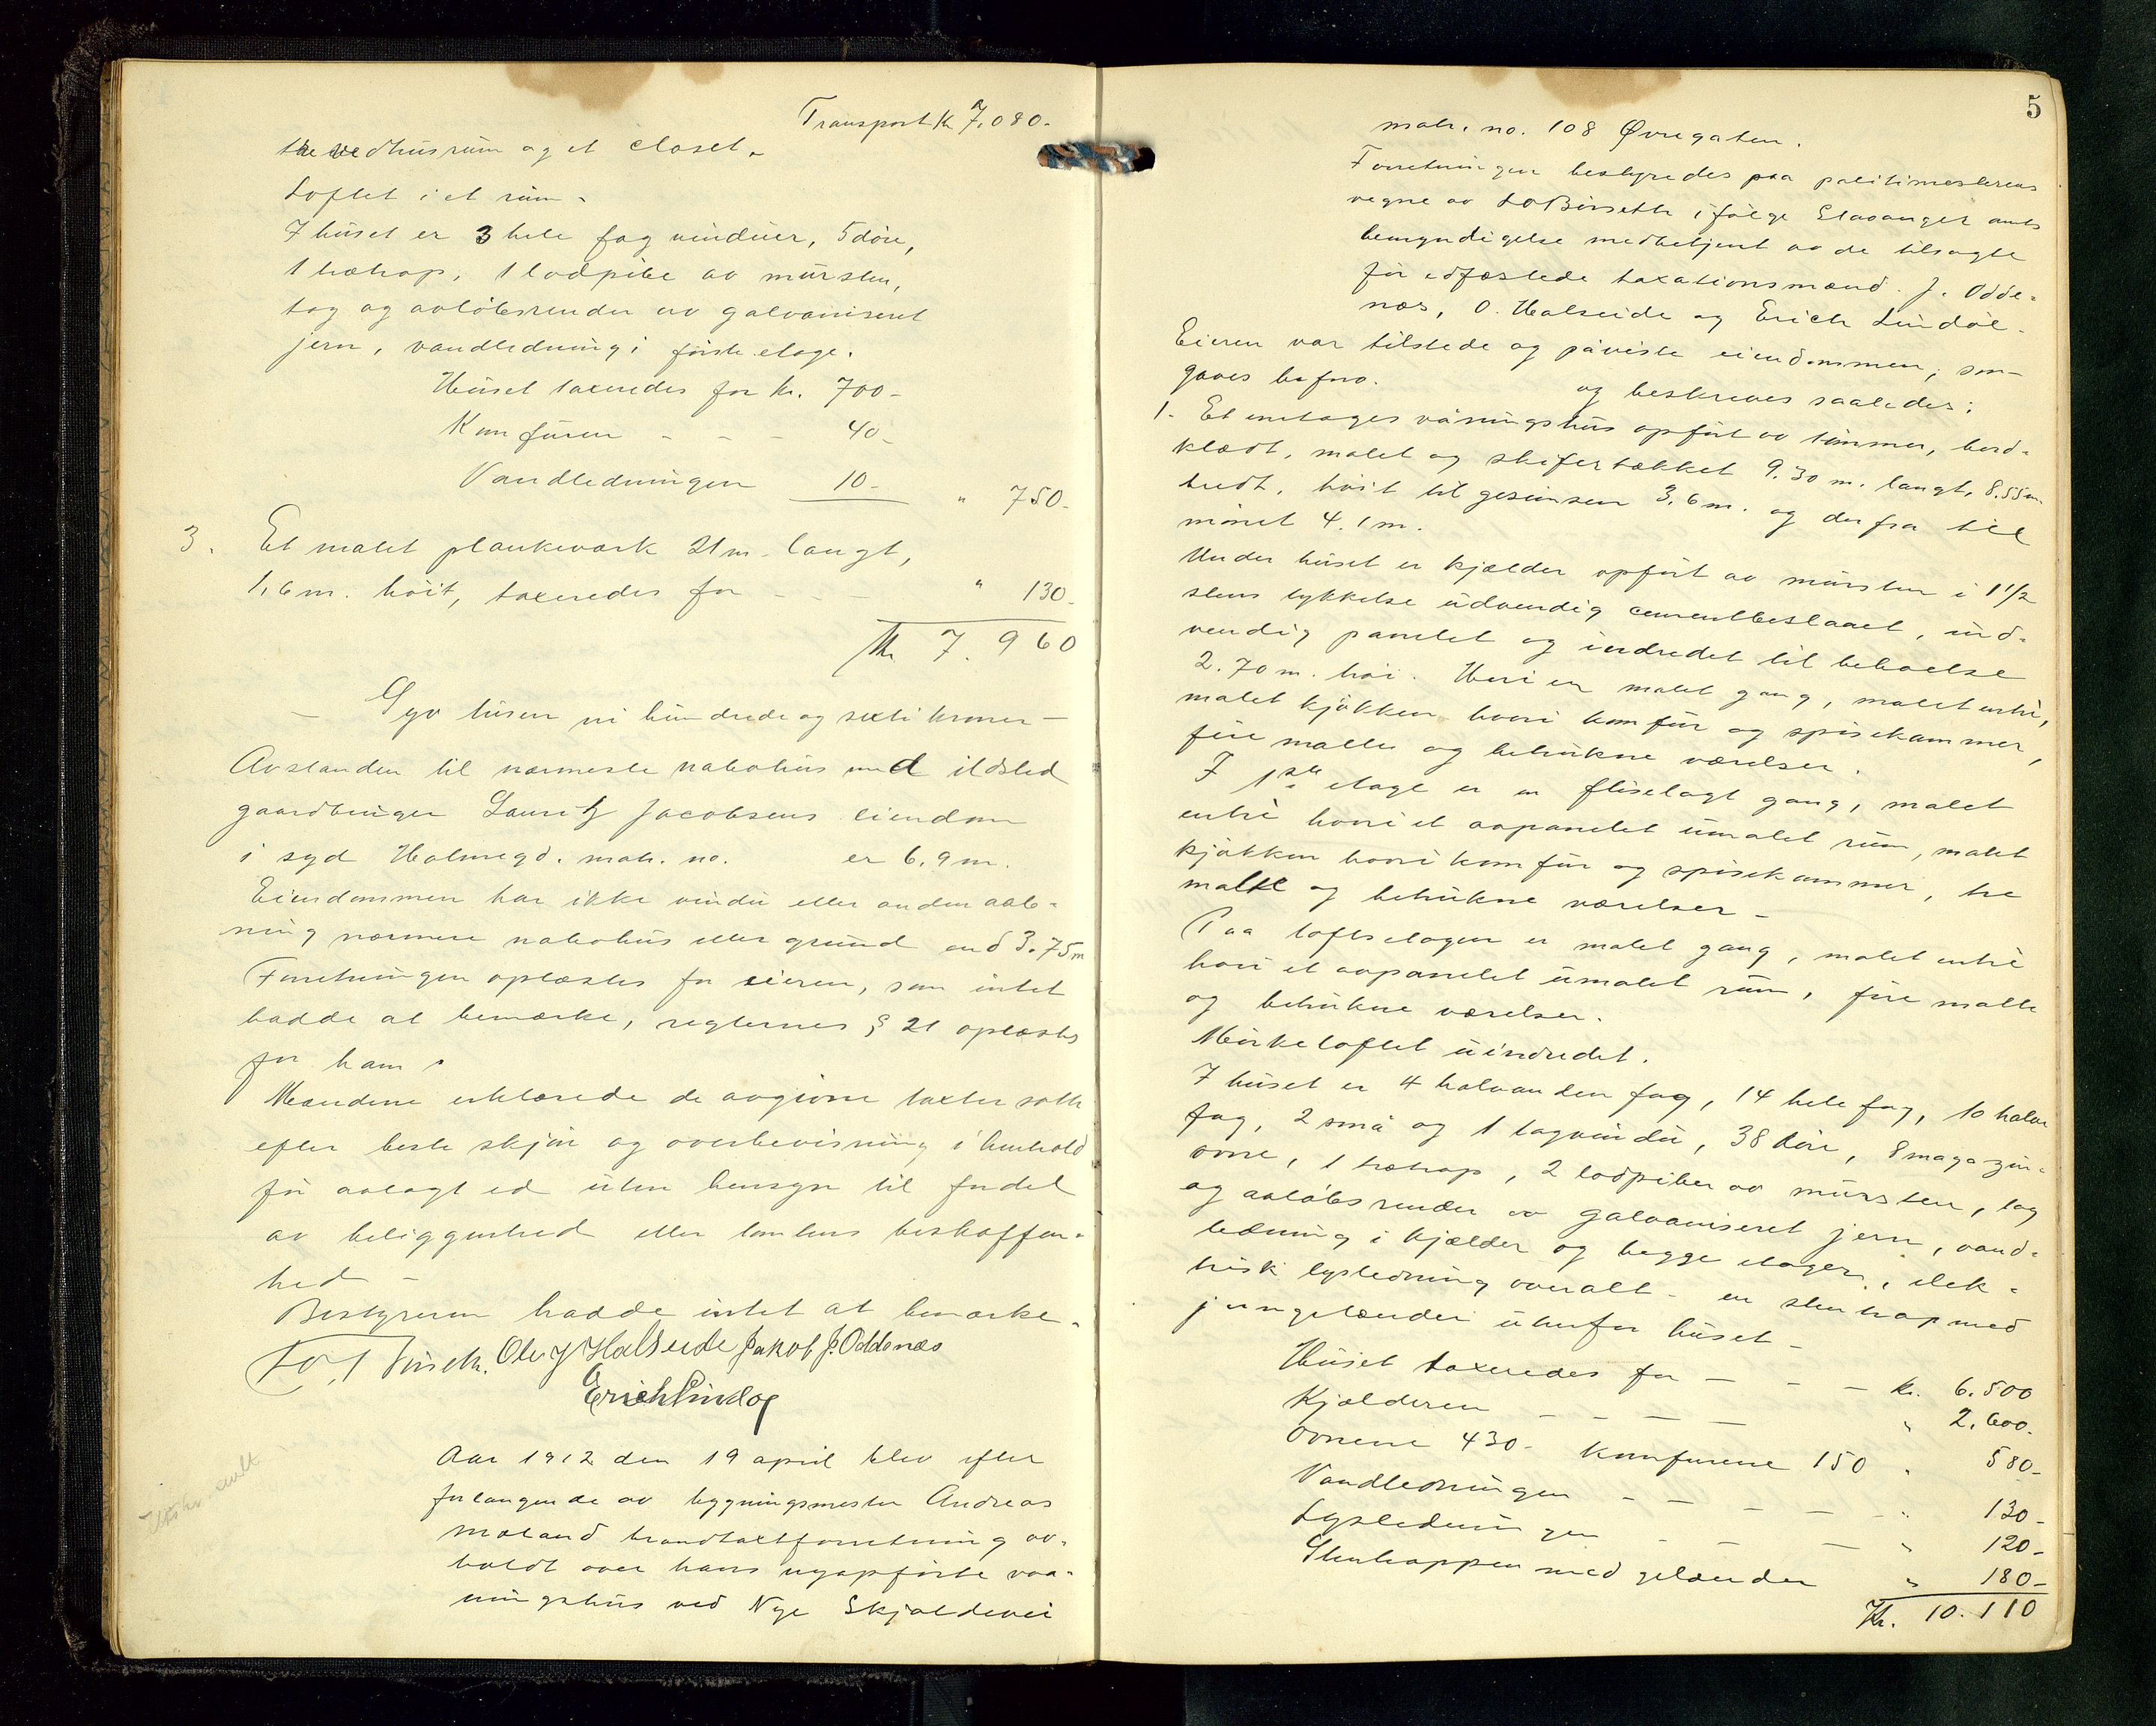 Transport Kr 7.080.
tre vedhusrum og et closet.
Loftet i et rum.
I huset er 3 hele fag vinduer, 5 døre,
1 trætrap, 1 lodpibe av mursten,
tag og avløbsrender av galvaniseret
jern, vandledning i første etage.
Huset taxeredes for kr. 700-
Komfuren - - - 40-
Vandledningen 10- " 750-
3. Et malet plankeværk 21 m. langt,
1,6 m. höit, taxeredes for - - - " 130-
Kr. 7.960
- Syv tusen ni hundrede og sexti kroner -
Avstanden til nærmeste nabohus med ildsted
gaardbruger Lauritz Jacobsens eiendom
i syd Holmegd. matr. no. er 6,9 m.
Eiendommen har ikke vindu eller anden aab-
ning nærmere nabohus eller grund end 3.75 m
Forretningen oplæstes for eieren, som intet
hadde at bemærke, reglernes § 21 oplæstes
for ham.
Mændene erklærede de avgivne taxter satte
efter beste skjøn og overbevisning i henhold
før avlagt ed uten hensyn til fordel
av beliggenhed eller tomtens beskaffen-
hed -
Bestyreren hadde intet at bemærke.
Ole J Halseide Jakob J. Oddenæs
Erich Lindøe
Aar 1912 den 19 april blev efter
forlangende av bygningsmester Andreas
Mæland brandtaxtforretning av-
holdt over hans nyopførte vaa-
ningshus ved Nye Skjoldevei
5
matr. no. 108 Øvregaten.
Forretningen bestyredes paa politimesterens
vegne av ifølge Stavanger amts
bemyndigelse medbetjent av de tilsagte
før edfæstede taxationsmænd J. Odde-
næs, O. Halseide og Erich Lindøe.
Eieren var tilstede og påviste eiendommen, som
gaves bsfno. og beskreves saaledes:
1. Et enetages våningshus opført av tømmer, bord-
klædt, malet og skifertækket 9.30 m. langt, 8.55 m.
bredt, höit til gesimsen 3.6 m. og derfra til
mönet 4.1 m.
Under huset er kjælder opført av mursten i 1 1/2
stens tykkelse udvendig cementbeslaaet, ind-
vendig panelet og indredet til beboelse
2.70 m. høi. Heri en malet gang, malet entre,
malet kjøkken hvori komfur og spisekammer,
fire malte og betrukne værelser.
I 1ste etage er en fliselagt gang, malet
entre hvori et avpanelet umalet rum, malet
kjøkken hvori komfur og spisekammer, tre
malte og betrukne værelser -
Paa loftsetagen er malet gang, malet entre
hvori et avpanelet umalet rum, fire malte
og betrukne værelser.
Mørkeloftet uindredet.
I huset er 4 halvanden fag, 14 hele fag, 10 halve
fag, 2 små og 1 tagvindu, 38 døre, 8 magazin-
ovne, 1 trætrap, 2 lodpiber av mursten, tag
og avløbsrender av galvaniseret jern, vand-
ledning i kjælder og begge etager, elek-
trisk lysledning overalt - en stentrap med
jerngelænder utenfor huset -
Huset taxeredes for - - - kr. 6.500
Kjælderen - - - - " 2.600.
Ovnene 430- Komfurene 150 " 580-
Vandledningen - - - - - " 130-
Lysledningen - - - " 120-
Stentrappen med gelænder " 180-
Kr. 10.110